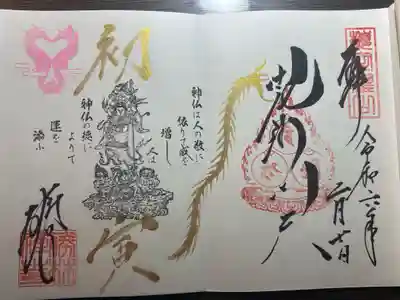 奉拝
令和六年
二月廿日
毘沙門天
初寅
神仏は人の敬に
依りて威を
増し
人は
神仏の徳に
よりて
運を
添ふ